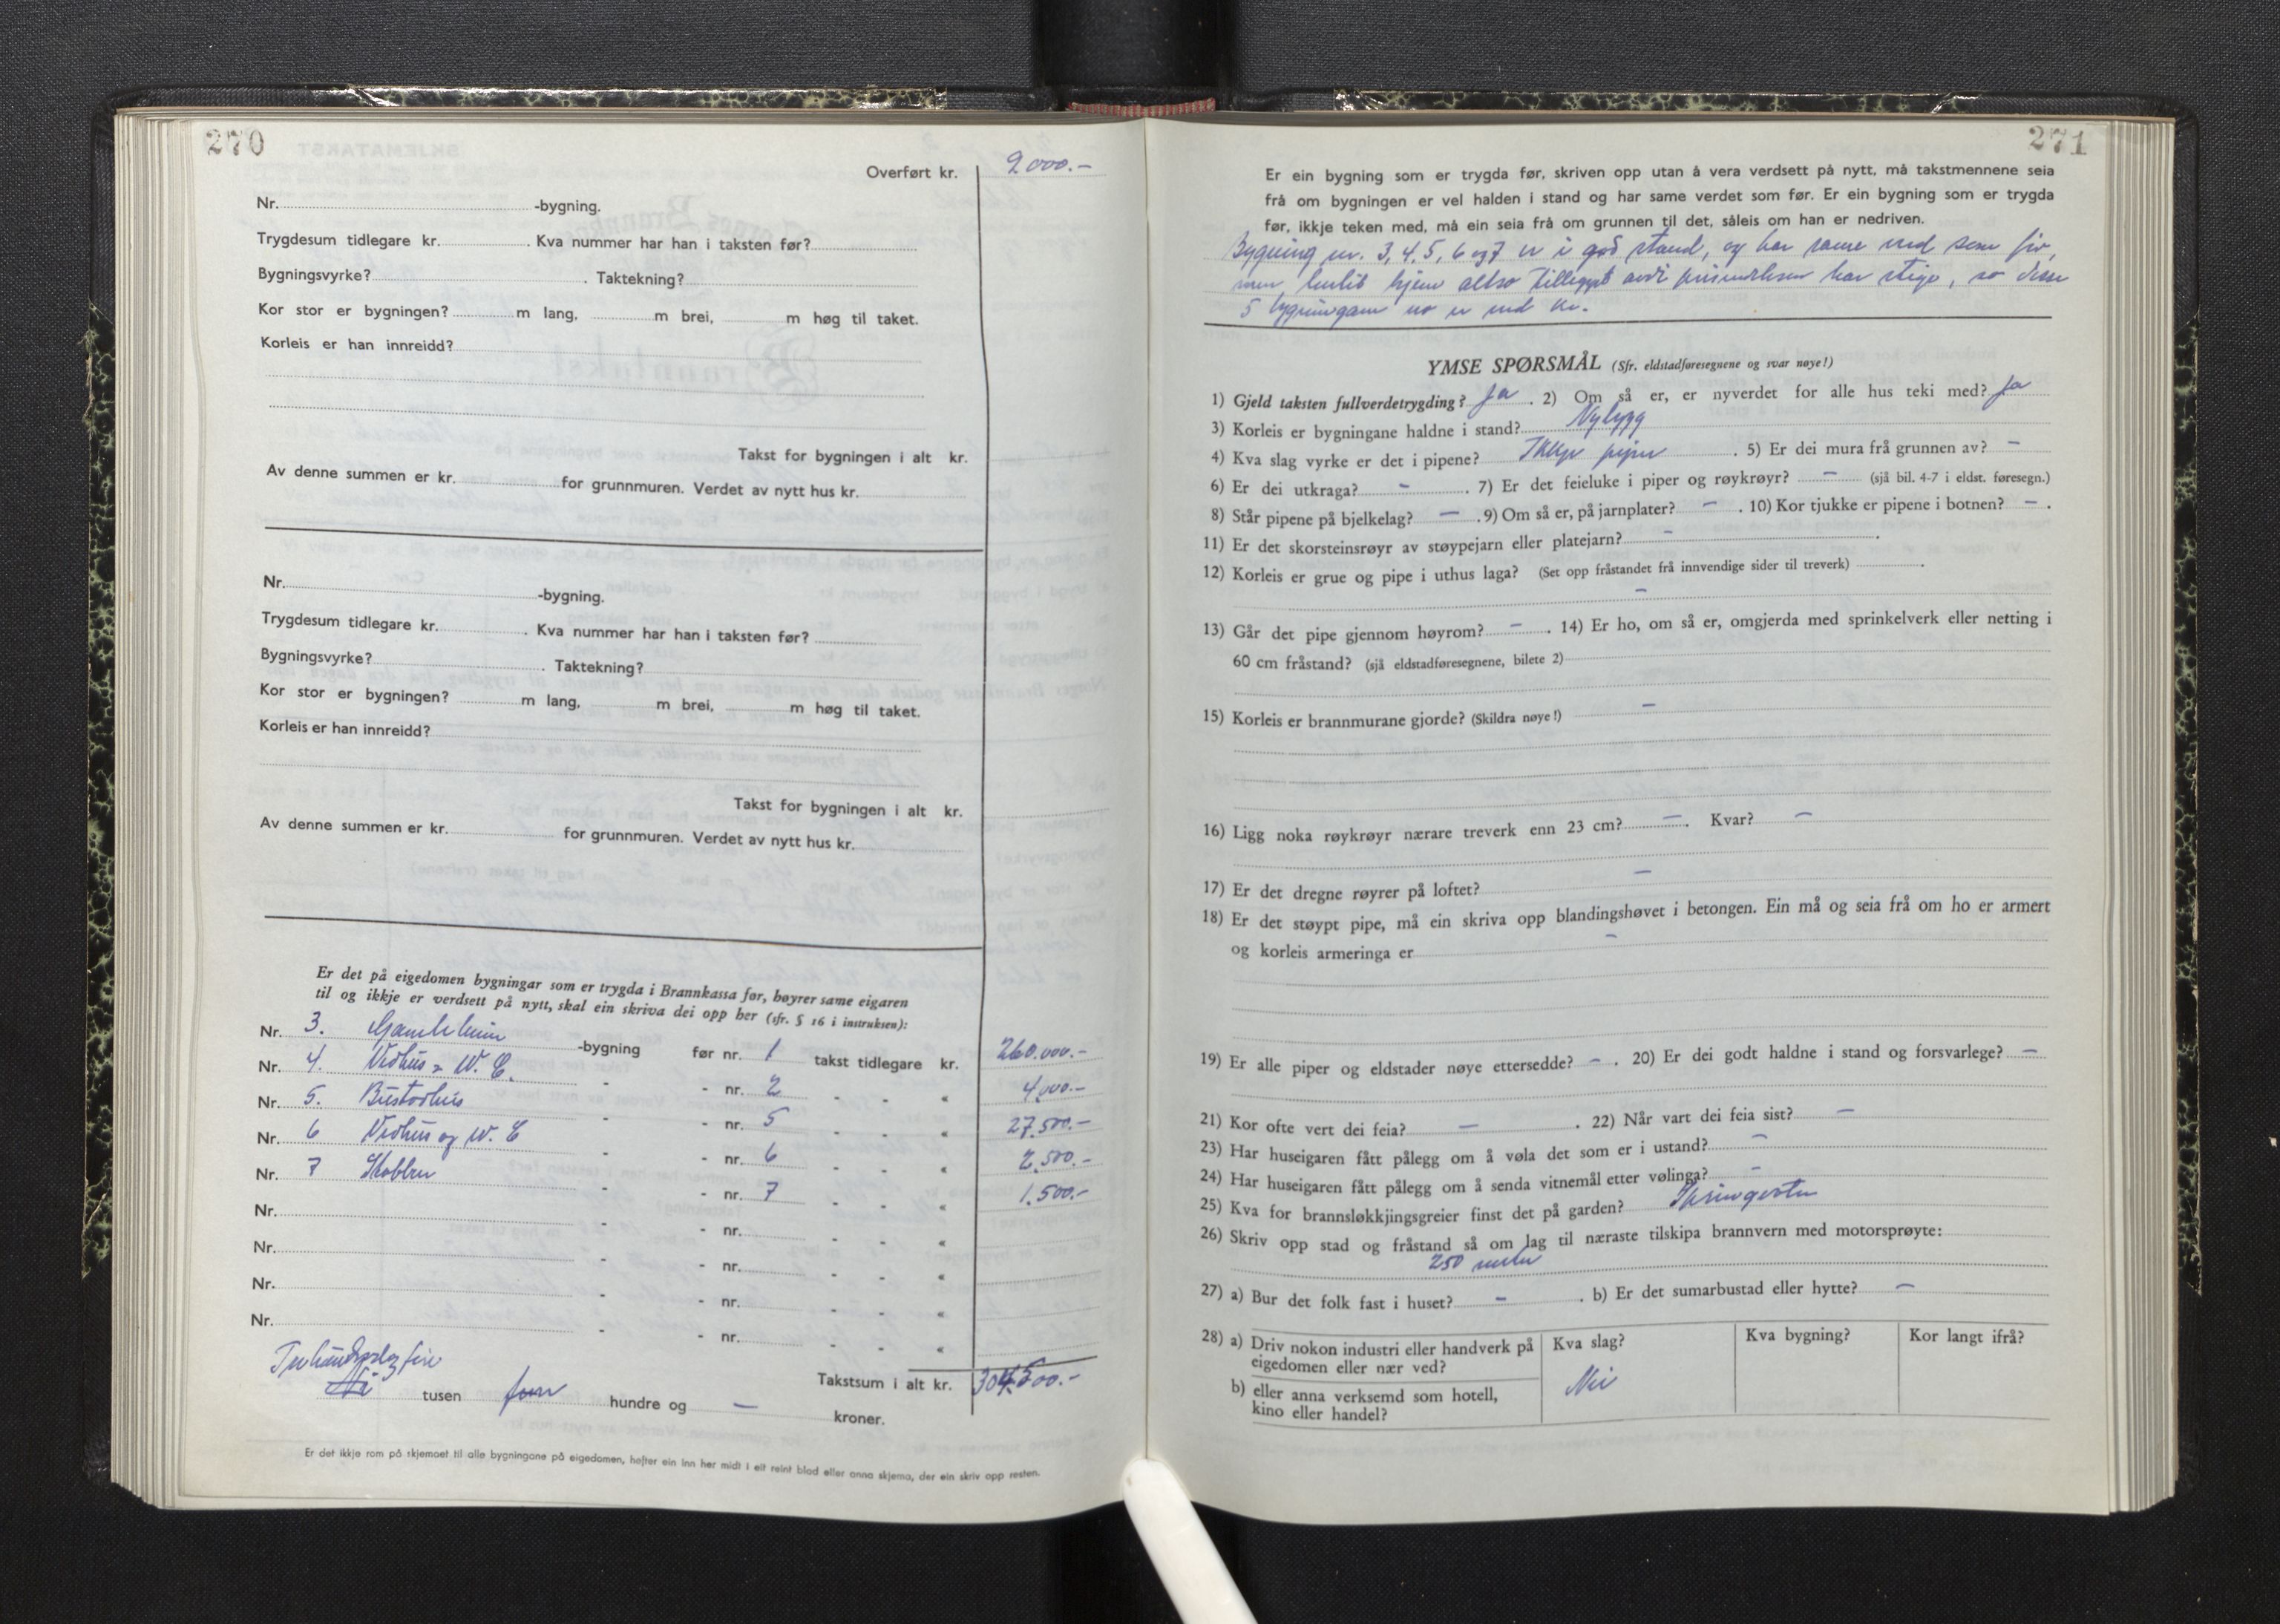 270
Overført kr. 9.000.-
Nr. -bygning.
Trygdesum tidlegare kr. . Kva nummer har han i taksten før?
Bygningsvyrke? . Taktekning?
Kor stor er bygningen? m lang, m brei, m høg til taket.
Korleis er han innreidd?
Takst for bygningen i alt kr.
Av denne summen er kr. for grunnmuren. Verdet av nytt hus kr.
Nr. -bygning.
Trygdesum tidlegare kr. . Kva nummer har han i taksten før?
Bygningsvyrke? . Taktekning?
Kor stor er bygningen? m lang, m brei, m høg til taket.
Korleis er han innreidd?
Takst for bygningen i alt kr.
Av denne summen er kr. for grunnmuren. Verdet av nytt hus kr.
Er det på eigedomen bygningar som er trygda i Brannkassa før, høyrer same eigaren
til og ikkje er verdsett på nytt, skal ein skriva dei opp her (sfr. § 16 i instruksen):
Nr. 3. Gamleheim -bygning før nr. 1 takst tidlegare kr. 260.000.-
Nr. 4. Vedhus - W. C. - - nr. 2 - - « 4.000.-
Nr. 5. Bustadhus - - nr. 5 - - « 27.500.-
Nr. 6 Vedhus og W. C - - nr. 6 - - « 2.500.-
Nr. 7 - - nr. 7 - - « 1.500.-
Nr. - - nr. - - «
Nr. - - nr. - - «
Nr. - - nr. - - «
Nr. - - nr. - - «
Trehundreogfire
tusen fem hundre og — kroner.
Takstsum i alt kr. 304.500.-
Er det ikkje rom på skjemaet til alle bygningane på eigedomen, hefter ein inn her midt i eit reint blad eller anna skjema, der ein skriv opp resten.
271
Er ein bygning som er trygda før, skriven opp utan å vera verdsett på nytt, må takstmennene seia
frå om bygningen er vel halden i stand og har same verdet som før. Er ein bygning som er trygda
før, ikkje teken med, må ein seia frå om grunnen til det, såleis om han er nedriven.
Bygning nr. 3, 4, 5, 6 og 7 er i god stand, og har same verd som før,
men altso tillegget avdi prisindeksen har stige, so desse
5 bygningane no er verd kr.
YMSE SPØRSMÅL (Sfr. eldstadføresegnene og svar nøye!)
1) Gjeld taksten fullverdetrygding? Ja . 2) Om så er, er nyverdet for alle hus teki med? Ja
3) Korleis er bygningane haldne i stand? Nybygg
4) Kva slag vyrke er det i pipene? Ikkje piper . 5) Er dei mura frå grunnen av? -
6) Er dei utkraga? - . 7) Er det feieluke i piper og røykrøyr? - (sjå bil. 4-7 i eldst. føresegn.)
8) Står pipene på bjelkelag? - . 9) Om så er, på jarnplater? - . 10) Kor tjukke er pipene i botnen? - .
11) Er det skorsteinsrøyr av støypejarn eller platejarn? - .
12) Korleis er grue og pipe i uthus laga? (Set opp fråstandet frå innvendige sider til treverk) .
-
13) Går det pipe gjennom høyrom? - . 14) Er ho, om så er, omgjerda med sprinkelverk eller netting i
60 cm fråstand? (sjå eldstadføresegnene, bilete 2)
15) Korleis er brannmurane gjorde? (Skildra nøye!) -
16) Ligg noka røykrøyr nærare treverk enn 23 cm? - . Kvar? -
17) Er det dregne røyrer på loftet? -
18) Er det støypt pipe, må ein skriva opp blandingshøvet i betongen. Ein må og seia frå om ho er armert
og korleis armeringa er -
19) Er alle piper og eldstader nøye ettersedde? - . 20) Er dei godt haldne i stand og forsvarlege? -
21) Kor ofte vert dei feia? - . 22) Når vart dei feia sist? -
23) Har huseigaren fått pålegg om å vøla det som er i ustand? -
24) Har huseigaren fått pålegg om å senda vitnemål etter vølinga? -
25) Kva for brannsløkkjingsgreier finst det på garden?
26) Skriv opp stad og fråstand så om lag til næraste tilskipa brannvern med motorsprøyte:
250 meter
27) a) Bur det folk fast i huset? - . b) Er det sumarbustad eller hytte? -
28) a) Driv nokon industri eller handverk på
eigedomen eller nær ved?
b) eller anna verksemd som hotell,
kino eller handel?
Kva slag?
Nei
Kva bygning?
Kor langt ifrå?